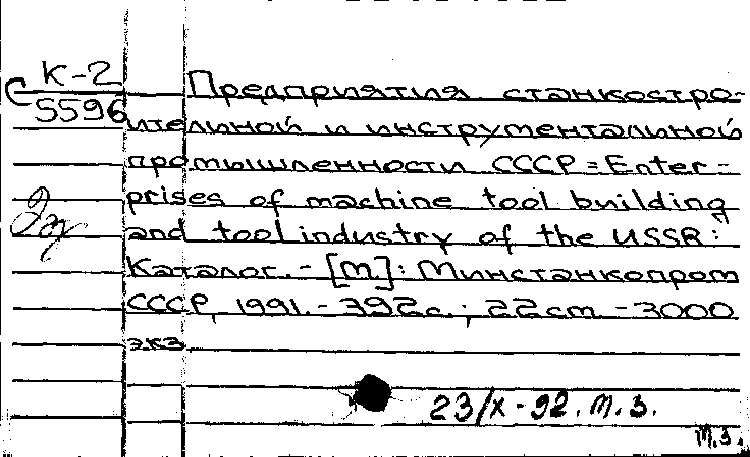 С К-2
5596
Предприятия станкостро-
ительной и инструментальной
промышленности СССР = Enter-
prises of machine tool building
and tool industry of the USSR:
Каталог. - [М]: Минстанкопром
СССР, 1991. - 392с.; 22cm - 3000
экз.
23/X-92. м.з.
м.з.